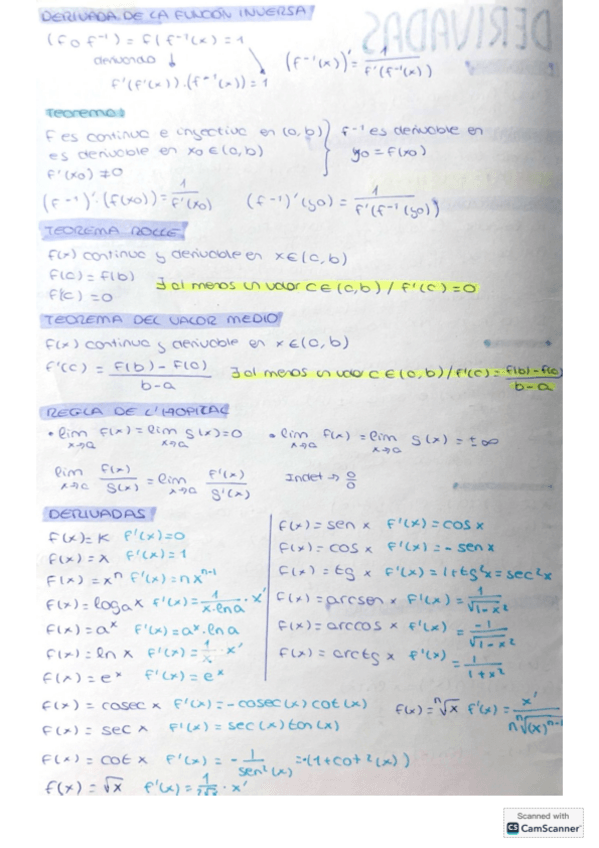 DERIVADA DE LA FUNCIÓN INVERSA
(f o f⁻¹) = f(f⁻¹(x) = 1
derivando ↓
f'(f'(x)).(f⁻¹(x)) = 1
(f⁻¹(x))' = 1/f'(f⁻¹(x))
Teorema:
f es continua e inyectiva en (a,b)
es derivable en x₀ ∈ (a,b)
f'(x₀) ≠ 0
f⁻¹ es derivable en
y₀ = f(x₀)
(f⁻¹)'.(f(x₀)) = 1/f'(x₀) (f⁻¹)'(y₀) = 1/f'(f⁻¹(y₀))
TEOREMA ROLLE
f(x) continua y derivable en x ∈ (a,b)
f(a) = f(b) ∃ al menos un valor c ∈ (a,b) / f'(c) = 0
f'(c) = 0
TEOREMA DEL VALOR MEDIO
f(x) continua y derivable en x ∈ (a,b)
f'(c) = f(b) - f(a)/b-a ∃ al menos un valor c ∈ (a,b) / f'(c) = f(b)-f(a)/b-a
REGLA DE L'HOPITAL
• lim x→a f(x) = lim x→a g(x) = 0 • lim x→a f(x) = lim x→a g(x) = ±∞
lim x→a f(x)/g(x) = lim x→a f'(x)/g'(x) Indet → 0/0
DERIVADAS
f(x) = K f'(x) = 0
f(x) = x f'(x) = 1
f(x) = xⁿ f'(x) = nxⁿ⁻¹
f(x) = logₐx f'(x) = 1/x.lna · x'
f(x) = aˣ f'(x) = aˣ.lna
f(x) = ln x f'(x) = 1/x · x'
f(x) = eˣ f'(x) = eˣ
f(x) = sen x f'(x) = cos x
f(x) = cos x f'(x) = - sen x
f(x) = tg x f'(x) = 1+tg²x = sec²x
f(x) = arcsen x f'(x) = 1/√1-x²
f(x) = arccos x f'(x) = -1/√1-x²
f(x) = arctg x f'(x) = 1/1+x²
f(x) = cosec x f'(x) = -cosec(x) cot(x) f(x) = ⁿ√x f'(x) = x'/n ⁿ√(x)ⁿ⁻¹
f(x) = sec x f'(x) = sec(x) tan(x)
f(x) = cot x f'(x) = - 1/sen²(x) = -(1+cot²(x))
f(x) = √x f'(x) = 1/2√x · x'
DERIVADAS
Scanned with
CS CamScanner